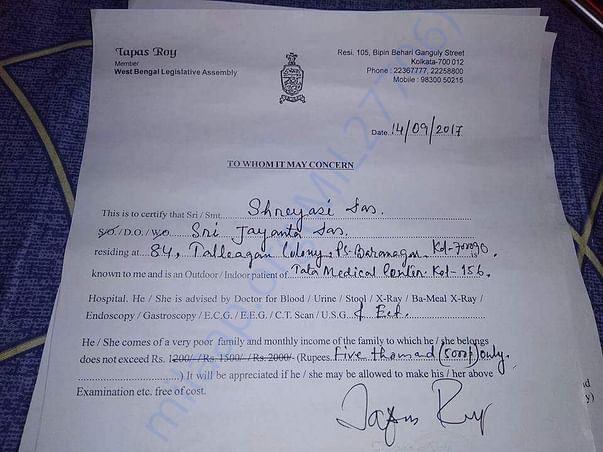 Tapas Roy
Member
West Bengal Legislative Assembly
Resi. 105, Bipin Behari Ganguly Street
Kolkata-700 012
Phone : 22367777, 22258800
Mobile : 98300 50215
Date..14/09/2017
TO WHOM IT MAY CONCERN
This is to certify that Sri / Smt. Shreyasi Das.
S/O./D.O./W.O. Sri Jayanta Das.
residing at 84, Colony, Ps. Baranagar. Kol-700090.
known to me and is an Outdoor / Indoor patient of Tata Medical Center Kol-156.
Hospital. He / She is advised by Doctor for Blood / Urine / Stool / X-Ray / Ba-Meal X-Ray /
Endoscopy / Gastroscopy / E.C.G. / E.E.G. / C.T. Scan / U.S.G. & Ect.
He / She comes of a very poor family and monthly income of the family to which he / she belongs
does not exceed Rs. 1200/- /Rs. 1500/- /Rs. 2000/- (Rupees. Five thousand (5000/-) only.
) It will be appreciated if he / she may be allowed to make his / her above
Examination etc. free of cost.
Tapas Roy